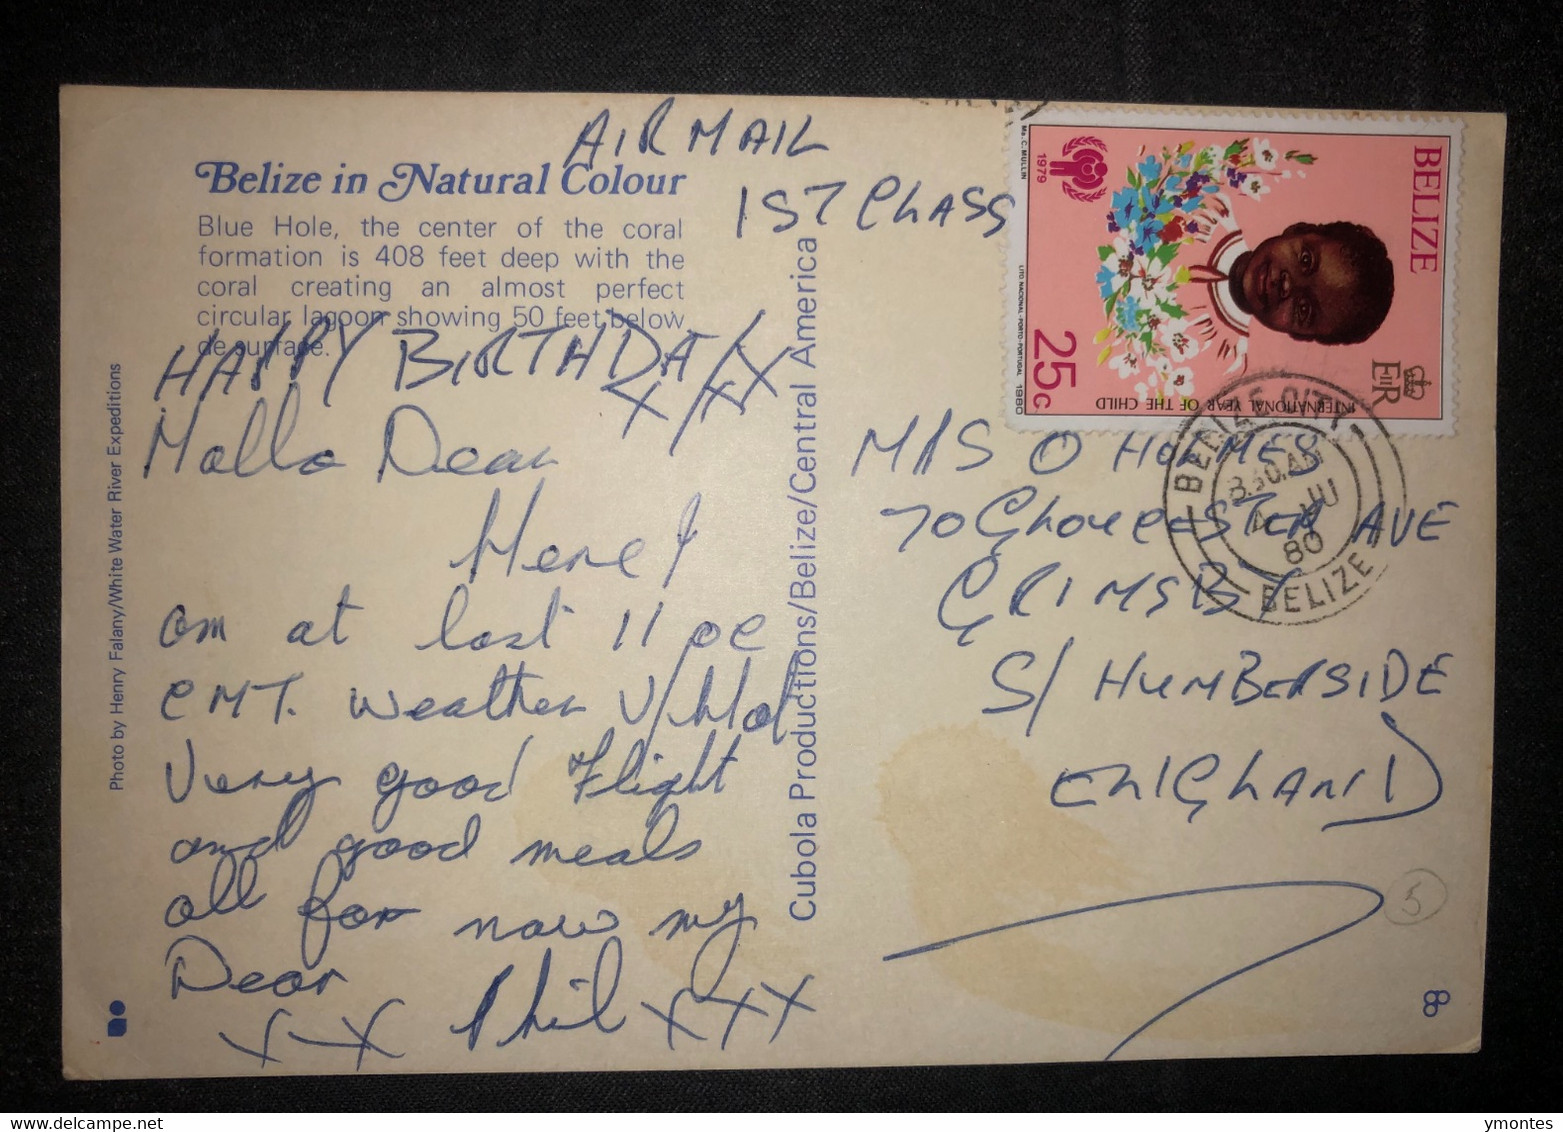 AIRMAIL
1ST CLASS
Belize in Natural Colour
Blue Hole, the center of the coral
formation is 408 feet deep with the
coral creating an almost perfect
circular lagoon showing 50 feet below
de surface.
HAPPY BIRTHDAY
X X X X
Hallo Dear
Here I
am at last 11 oc
GMT. weather V/Hot
Very good Flight
and good meals
all for now my
Dear
X X Phil X X X
Photo by Henry Falany/White Water River Expeditions
Cubola Productions/Belize/Central America
MRS O HOLMES
70 GLOUCESTER AVE
GRIMSBY
S/ HUMBERSIDE
ENGLAND
BELIZE
EIIR
INTERNATIONAL YEAR OF THE CHILD
25c
1979
Ms. C. MULLIN
LITO NACIONAL-PORTO-PORTUGAL 1980
BELIZE CITY
8 30 AM
JU
80
BELIZE
5
ymontes